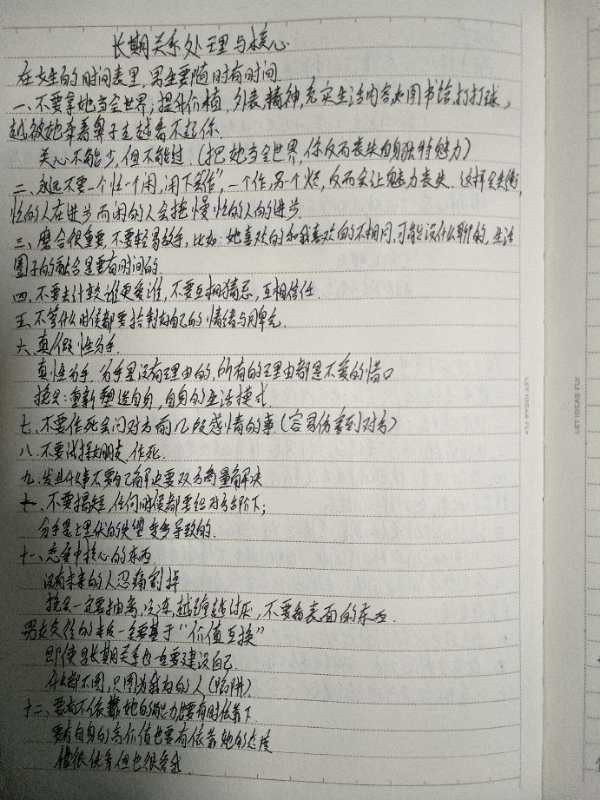 长期关系处理与核心
在女生的时间表里,男生要随时有时间
一、不要拿她当全世界;提升价值,外表,精神,充实生活内容,如图书馆,打打球,
越被她牵着鼻子走越看不起你.
关心不能少,但不能过.(把她当全世界,你反而丧失自身独特魅力)
二、永远不要一个忙一个闲,闲下会作",一个作,另一个烦,反而会让魅力丧失.这样会失衡,
忙的人在进步而闲的人会拖慢忙的人的进步.
三、磨合很重要,不要轻易放手,比如:她喜欢的和我喜欢的不相同,可能没什么聊的,生活
圈子的融合是要有时间的.
四.不要去计较谁更爱谁,不要互相猜忌,互相信任.
五.不管什么时候都要控制好自己的情绪与用
六.真假性分手.
真性分手.分手是没有理由的,所有的理由都是不爱的借口
接受:重新塑造自身,自身的生活模式.
七.不要作死去问对方前几段感情的事(容易伤害到对方)
八.不要试探女朋友.作死.
九.发生什么事不要自己解决要双方商量解决
十.不要揭短,任何时候都要给对方台阶下;
分手是上里伏的失望变多导致的.
十一、恋爱中核心的东西
没有未来的人忍痛割掉
接受一定要抽离,冷冻,越纠缠越讨厌,不要看表面的东西.
男女交往的本质一定要基于"价值互换"
即使是长期关系也要建设自己.
什么都不图,只图为我好的人(陷阱)
十二、要有不依靠她的能力也要有时依靠下.
要有自身的高价值也要有依靠她的态度